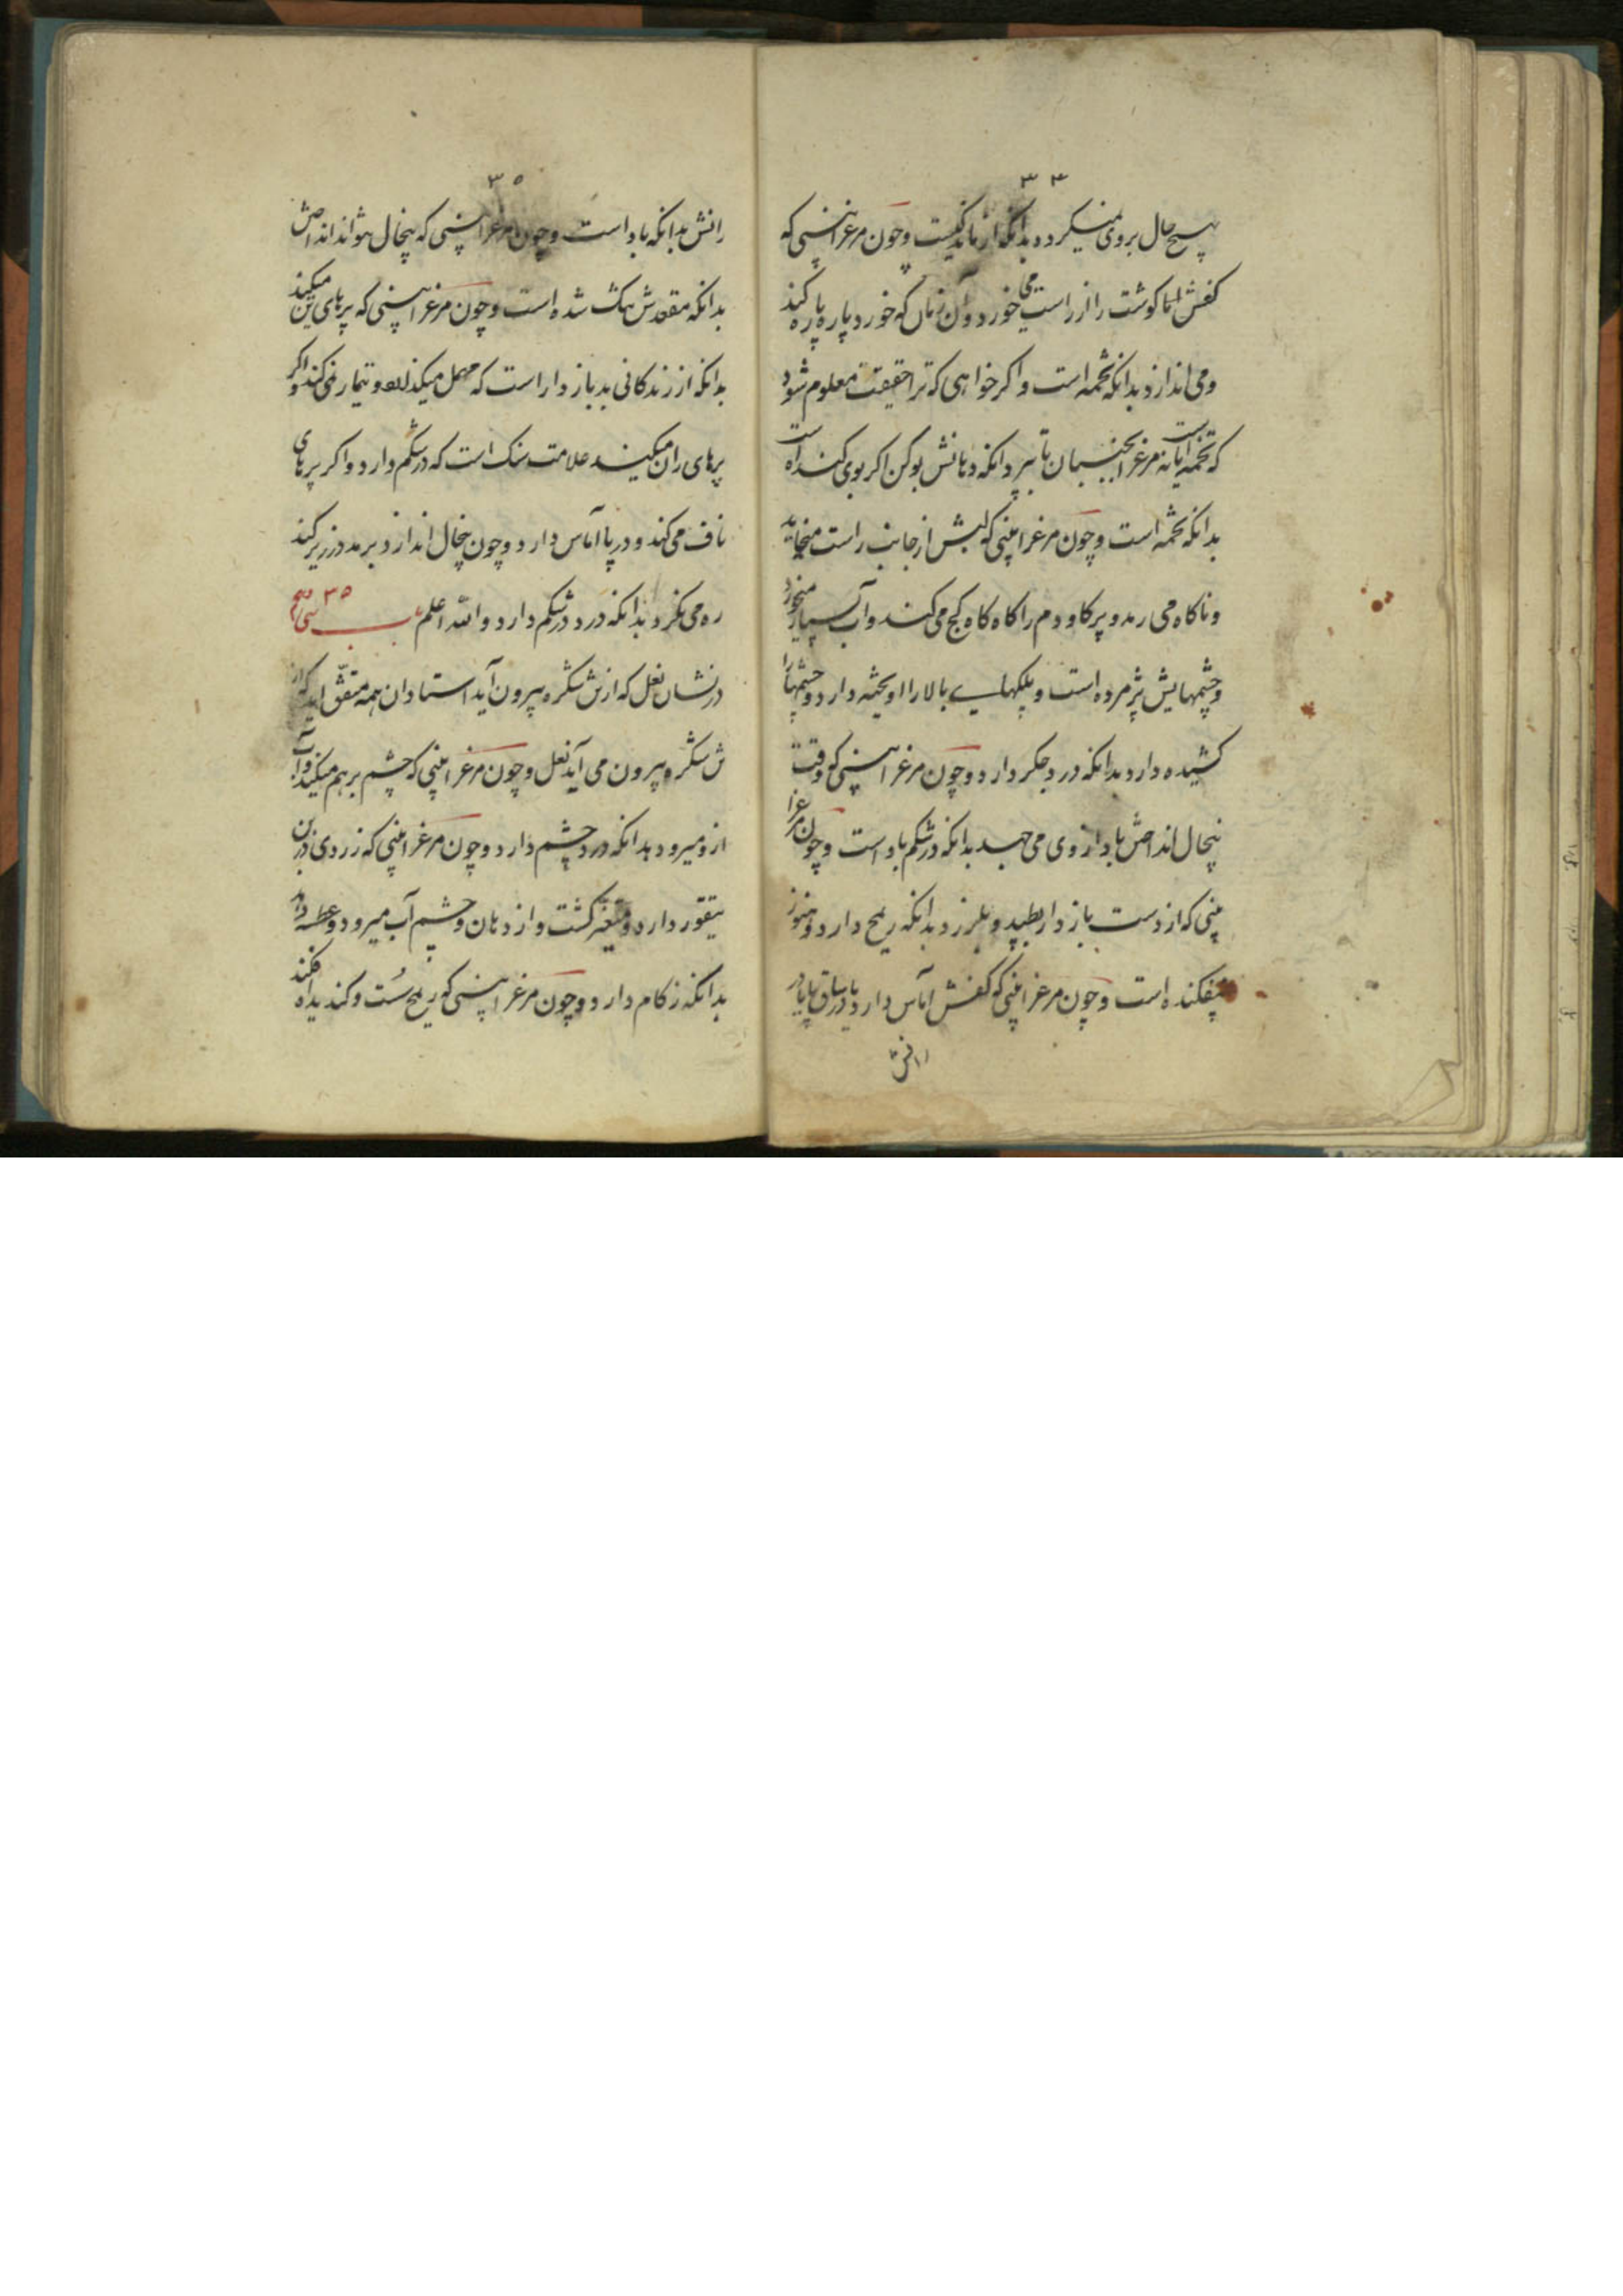 ۳۴
هیچ حال بروی نمیکردد بدانکه از باد نیست و چون مرغ را بینی که
کفش اما کوشت را از راست می خورد و آن زمان که خورد پاره پاره کند
و می اندازد بدانکه تخمه است و اکر خواهی که ترا حقیقت معلوم شود
که تخمه است یا نه مرغ را بجنبان تا بپرد آنکه دهانش بوکن اکر بوی کند آمده است
بدانکه تخمه است و چون مرغ را بینی که لبش از جانب راست میخاید
و ناکاه می رمد و پر کاو دم را کاه کاه کج می کند و آب بسیار میخورد
و چشمهایش پژمرده است و پلکهای بالا را اویخته دارد و چشمها را
کشیده دارد بدانکه درد جکر دارد و چون مرغ را بینی که وقت
پنجال انداختن باد از وی می جهد بدانکه در شکم باد است و چون مرغ را
بینی که از دست باز دار بطپد و بلرزد بدانکه ریح دارد و هنوز
بیفکنده است و چون مرغ را بینی که کفش اماس دارد یا در ساق پا یا در
رانش
۳۵
رانش بدانکه باد است و چون مرغ را بینی که پنجال نتواند انداختن
بدانکه مقعدش تنک شده است و چون مرغ را بینی که پرهای تن میکند
بدانکه از زندکانی بد بازدار است که مهمل میکند و تیمار نمی کند و اکر
پرهای ران میکند علامت سنک است که در شکم دارد و اکر پرهای
ناف می کند و در پا اماس دارد و چون پنجال اندازد برمد و در زیر کند
ره می نکرد بدانکه درد در شکم دارد و الله اعلم باب سی و پنجم ۳۵
در نشان نعل که از ش شکره بیرون آید استادان همه متفق اند که از
ش شکره بیرون می آید نعل و چون مرغ را بینی که چشم بر هم میکند و آب
از و میرود بدانکه درد چشم دارد و چون مرغ را بینی که زردی در بن
تیقور دارد و متغیر کشت و از دهان و چشم آب میرود و عطسه دارد
بدانکه زکام دارد و چون مرغ را بینی که ریح سست و کند بداه فکند